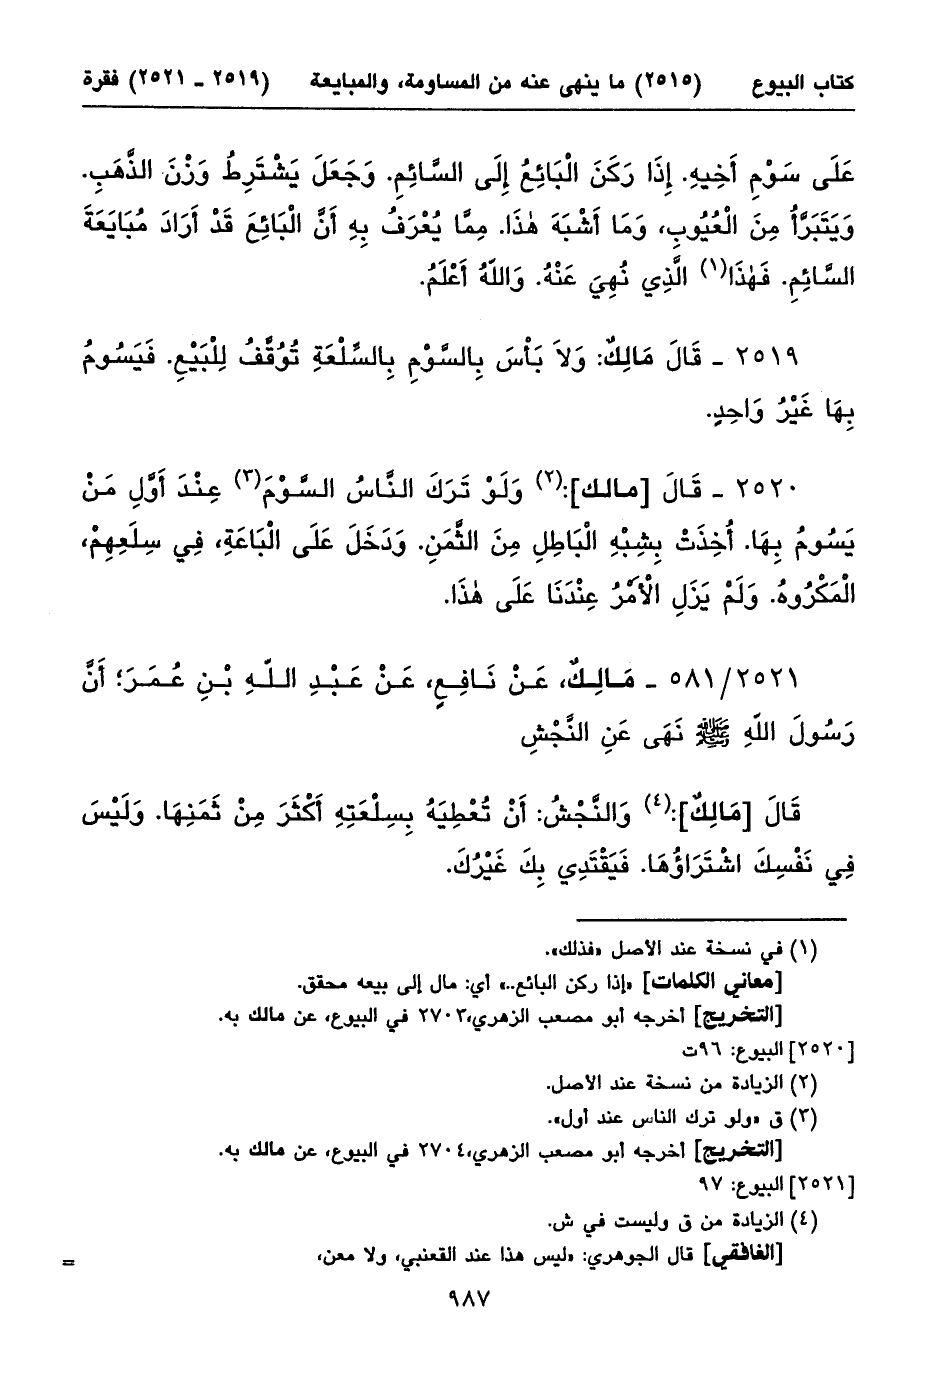 كتاب البيوع (٢٥١٥) ما ينهى عنه من المساومة، والمبايعة (٢٥١٩ ـ ٢٥٢١) فقرة
عَلَى سَوْمِ أَخِيهِ. إِذَا رَكَنَ الْبَائِعُ إِلَى السَّائِمِ. وَجَعَلَ يَشْتَرِطُ وَزْنَ الذَّهَبِ.
وَيَتَبَرَّأُ مِنَ الْعُيُوبِ، وَمَا أَشْبَهَ هٰذَا. مِمَّا يُعْرَفُ بِهِ أَنَّ الْبَائِعَ قَدْ أَرَادَ مُبَايَعَةَ
السَّائِمِ. فَهٰذَا(١) الَّذِي نُهِيَ عَنْهُ. وَاللّٰهُ أَعْلَمُ.
٢٥١٩ ـ قَالَ مَالِكٌ: وَلاَ بَأْسَ بِالسَّوْمِ بِالسِّلْعَةِ تُوُقَّفُ لِلْبَيْعِ. فَيَسُومُ
بِهَا غَيْرُ وَاحِدٍ.
٢٥٢٠ ـ قَالَ [مالك]:(٢) وَلَوْ تَرَكَ النَّاسُ السَّوْمَ(٣) عِنْدَ أَوَّلِ مَنْ
يَسُومُ بِهَا. أُخِذَتْ بِشِبْهِ الْبَاطِلِ مِنَ الثَّمَنِ. وَدَخَلَ عَلَى الْبَاعَةِ، فِي سِلَعِهِمْ،
الْمَكْرُوهُ. وَلَمْ يَزَلِ الْأَمْرُ عِنْدَنَا عَلَى هٰذَا.
٥٨١/٢٥٢١ ـ مَالِكٌ، عَنْ نَافِعٍ، عَنْ عَبْدِ اللّٰهِ بْنِ عُمَرَ؛ أَنَّ
رَسُولَ اللّٰهِ ﷺ نَهَى عَنِ النَّجْشِ
قَالَ [مَالِكٌ]:(٤) وَالنَّجْشُ: أَنْ تُعْطِيَهُ بِسِلْعَتِهِ أَكْثَرَ مِنْ ثَمَنِهَا. وَلَيْسَ
فِي نَفْسِكَ اشْتَرَاؤُهَا. فَيَقْتَدِي بِكَ غَيْرُكَ.
(١) في نسخة عند الأصل «فذلك».
[معاني الكلمات] «إذا ركن البائع..» أي: مال إلى بيعه محقق.
[التخريج] أخرجه أبو مصعب الزهري، ٢٧٠٣ في البيوع، عن مالك به.
[٢٥٢٠] البيوع: ٩٦ت
(٢) الزيادة من نسخة عند الأصل.
(٣) ق «ولو ترك الناس عند أول».
[التخريج] أخرجه أبو مصعب الزهري، ٢٧٠٤ في البيوع، عن مالك به.
[٢٥٢١] البيوع: ٩٧
(٤) الزيادة من ق وليست في ش.
[الغافقي] قال الجوهري: «ليس هذا عند القعنبي، ولا معن، =
٩٨٧